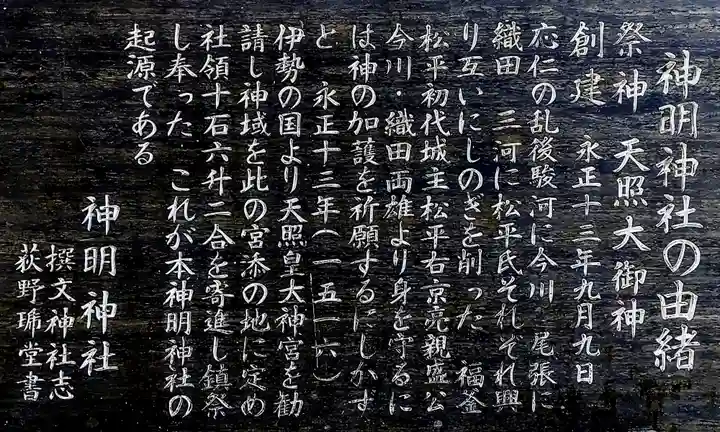 神明神社の由緒
祭神 天照大御神
創建 永正十三年九月九日
応仁の乱後駿河に今川 尾張に
織田 三河に松平氏それぞれ興
り互いにしのぎを削った 福釜
松平初代城主松平右京亮親盛公
今川・織田両雄より身を守るに
は神の加護を祈願するにしかず
と 永正十三年(一五一六)
伊勢の国より天照皇大神宮を勧
請し神域を此の宮添の地に定め
社領十石六升二合を寄進し鎮祭
し奉った これが本神明神社の
起源である
神明神社
撰文神社志
荻野琋堂書